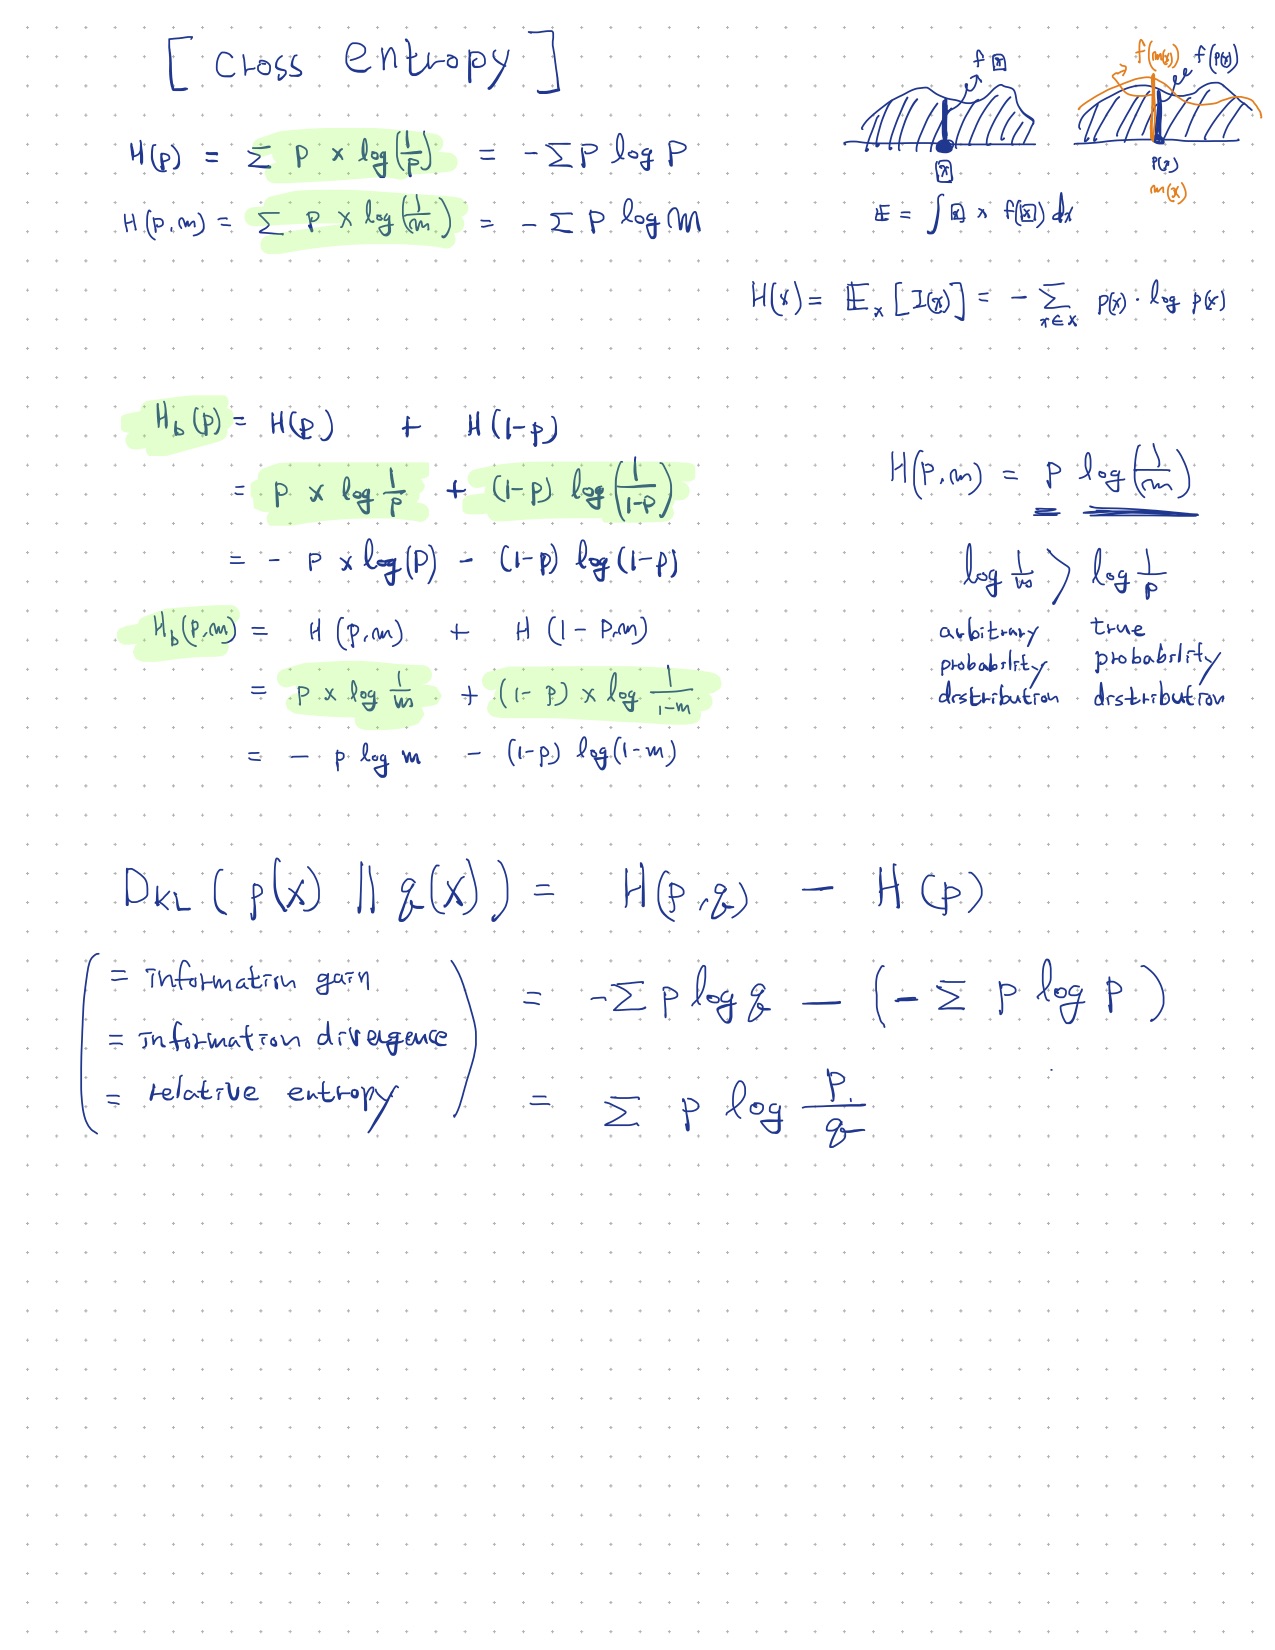 [ Cross entropy ]
H(p) = Σ p × log(1/p) = -Σ p log p
H(p,m) = Σ p × log(1/m) = - Σ p log m
f x
x
E = ∫ x × f(x) dx
f(m(x)) f(p(x))
m(x)
H(x) = E_x [I(x)] = - Σ_{x∈X} p(x) · log p(x)
H_b(p) = H(p) + H(1-p)
= p × log 1/p + (1-p) log(1/(1-p))
= - p × log(p) - (1-p) log(1-p)
H_b(p,m) = H(p,m) + H(1-p,m)
= p × log 1/m + (1-p) × log 1/(1-m)
= - p log m - (1-p) log(1-m)
H(p,m) = p log(1/m)
log 1/m > log 1/p
arbitrary probability distribution
true probability distribution
D_KL ( p(x) || q(x) ) = H(p,q) - H(p)
= -Σ p log q - (-Σ p log p)
= Σ p log p/q
( = information gain
= information divergence
= relative entropy )